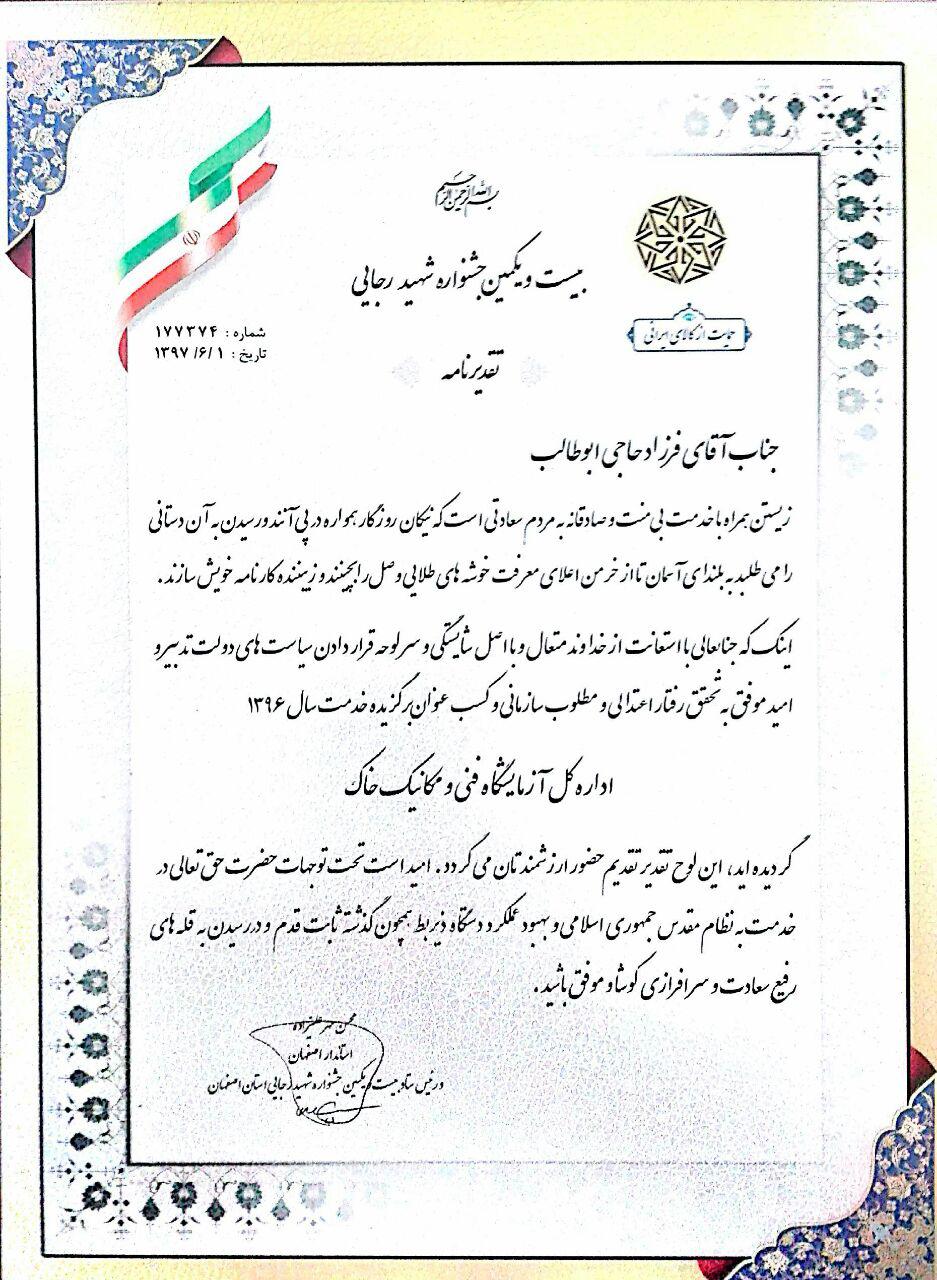 بسم الله الرحمن الرحیم
بیست و یکمین جشنواره شهید رجایی
حمایت از کالای ایرانی
شماره : ۱۷۷۳۷۴
تاریخ : ۱۳۹۷/۶/۱
تقدیرنامه
جناب آقای فرزاد حاجی ابوطالب
زیستن همراه با خدمت بی منت و صادقانه به مردم سعادتی است که نیکان روزگار همواره در پی آنند و رسیدن به آن دستانی
را می طلبد به بلندای آسمان تا از خرمن اعلای معرفت خوشه های طلایی وصل را بچینند و زیبنده کارنامه خویش سازند.
اینک که جنابعالی با استعانت از خداوند متعال و با اصل شایستگی و سرلوحه قرار دادن سیاست های دولت تدبیر و
امید موفق به تحقق رفتار اعتدالی و مطلوب سازمانی و کسب عنوان برگزیده خدمت سال ۱۳۹۶
اداره کل آزمایشگاه فنی و مکانیک خاک
گردیده اید، این لوح تقدیر تقدیم حضور ارزشمندتان می گردد. امید است تحت توجهات حضرت حق تعالی در
خدمت به نظام مقدس جمهوری اسلامی و بهبود عملکرد دستگاه ذیربط همچون گذشته ثابت قدم و در رسیدن به قله های
رفیع سعادت و سرافرازی کوشا و موفق باشید.
محسن مهرعلیزاده
استاندار اصفهان
و رئیس ستاد بیست و یکمین جشنواره شهید رجایی استان اصفهان